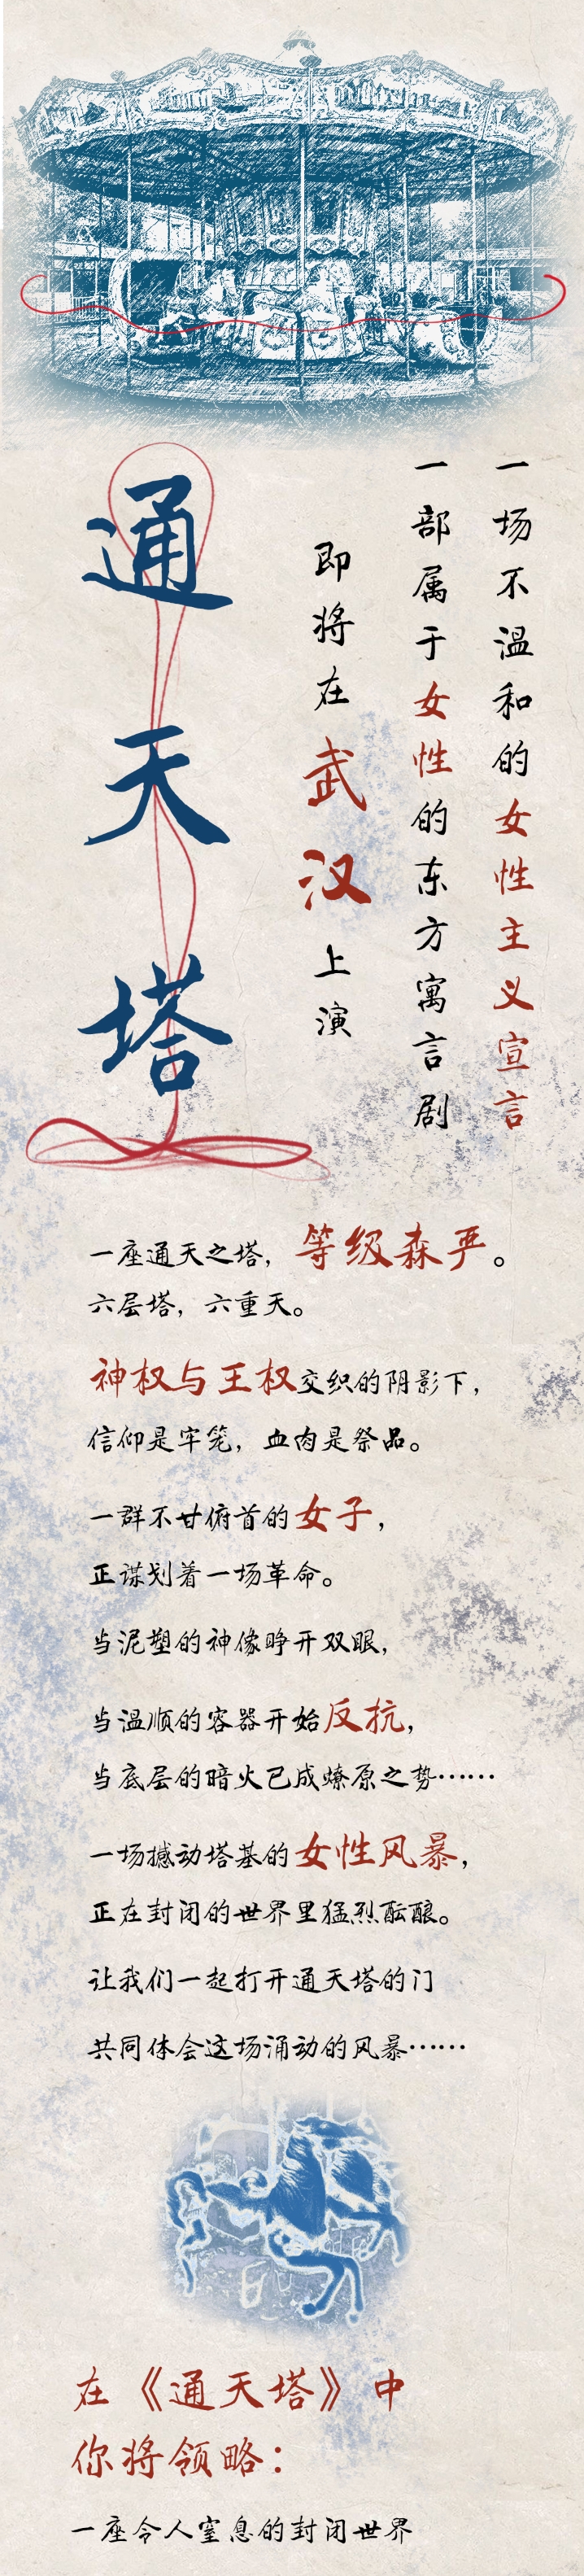 一场不温和的女性主义宣言
一部属于女性的东方寓言剧
即将在武汉上演
通天塔
一座通天之塔，等级森严。
六层塔，六重天。
神权与王权交织的阴影下，
信仰是牢笼，血肉是祭品。
一群不甘俯首的女子，
正谋划着一场革命。
当泥塑的神像睁开双眼，
当温顺的容器开始反抗，
当底层的暗火已成燎原之势……
一场撼动塔基的女性风暴，
正在封闭的世界里猛烈酝酿。
让我们一起打开通天塔的门
共同体会这场涌动的风暴……
在《通天塔》中
你将领略：
一座令人窒息的封闭世界